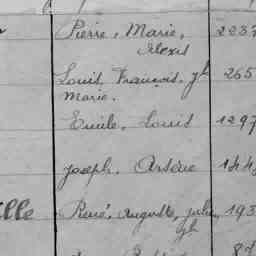 Pierre, Marie, 2237
Alexis
Louis, François, 265
Marie.
Emile, Louis 1297
Joseph, Arsène 144
ille René, Auguste, Jules 193
87